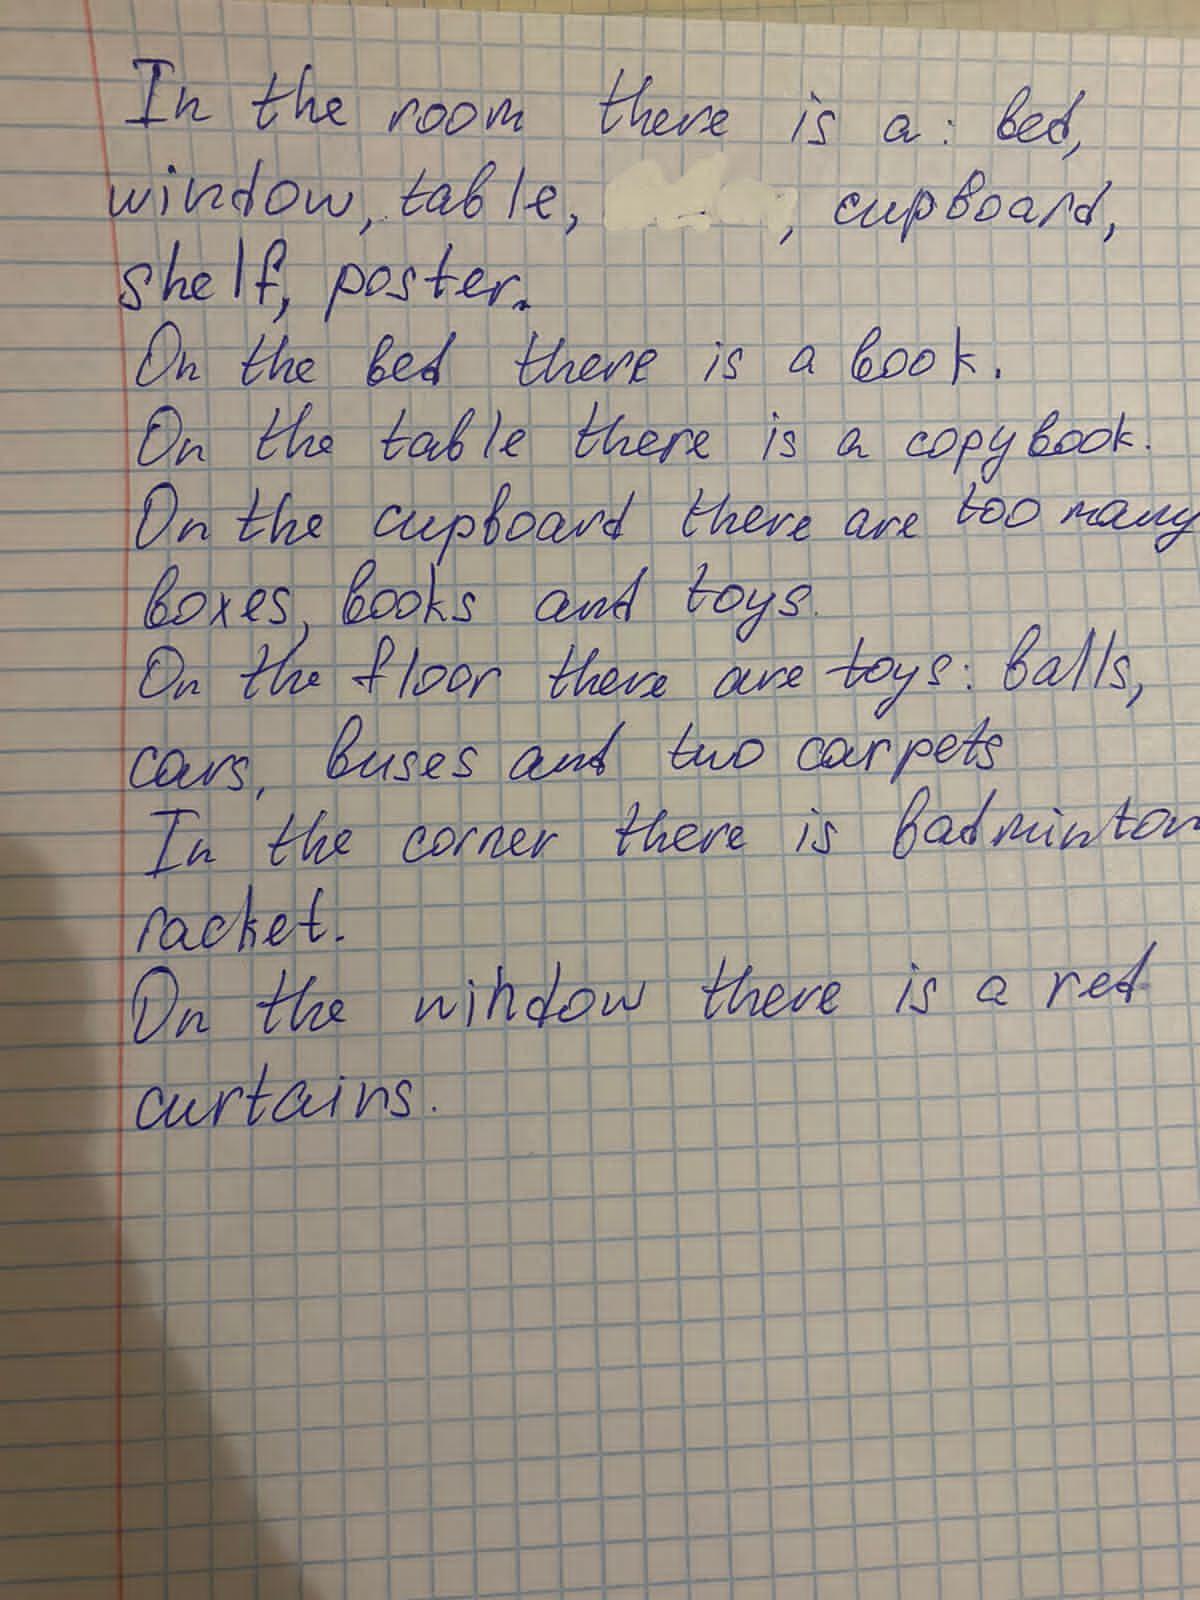 In the room there is a: bed,
window, table, , cupboard,
shelf, poster.
On the bed there is a book.
On the table there is a copybook.
On the cupboard there are too many
boxes, books and toys.
On the floor there are toys: balls,
cars, buses and two carpets
In the corner there is badminton
racket.
On the window there is a red
curtains.